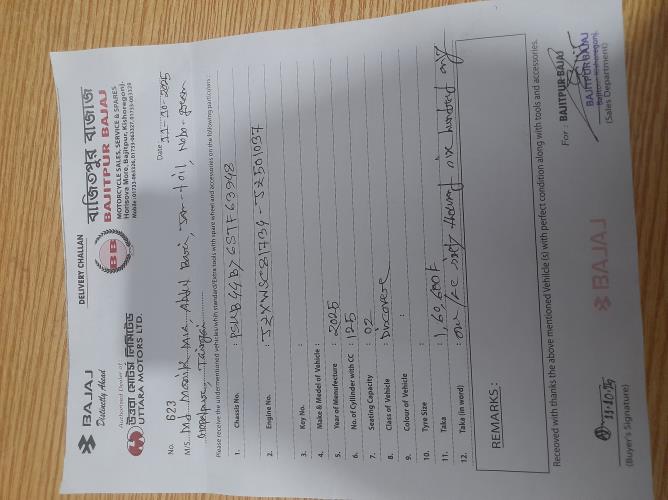 DELIVERY CHALLAN
BAJAJ
Distinctly Ahead
Authorised Dealer of
উত্তরা মোটর্স লিমিটেড
UTTARA MOTORS LTD.
BB
বাজিতপুর বাজাজ
BAJITPUR BAJAJ
MOTORCYCLE SALES, SERVICE & SPARES
Horisova More, Bajitpur, Kishoregonj.
No. 623
Date 11-10-2025
M/S. Md Manik Mia, Abdul Bari,
Please receive the undermentioned vehicles whih standard/Extra tools with spare wheel and accessories on the following particulars :
1. Chassis No. :
2. Engine No. : JZXWSC81734
3. Key No. :
4. Make & Medel of Vehicle :
5. Year of Manufecture : 2025
6. No. of Cylinder with CC : 125
7. Seating Capacity : 02
8. Class of Vehicle : Discover
9. Colour of Vehicle :
10. Tyre Size :
11. Taka : 1,60,600/-
12. Taka (in word) : one lac sixty thousand six hundred only
REMARKS :
Receoved with thanks the above mentioned Vehilcle (s) with perfect condition along with tools and accessories.
11-10-25
(Buyer's Signature)
BAJAJ
For : BAJITPUR BAJAJ
BAJITPUR BAJAJ
Bajitpur, Kishoregonj.
(Sales Department)